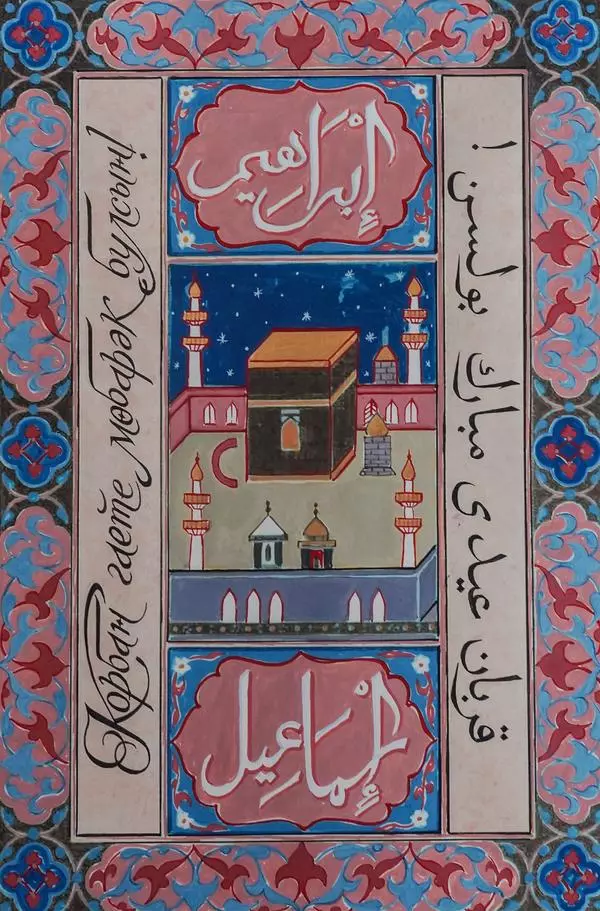 إبراهيم
قربان عيدى مبارك بولسن !
Корбан гаете мөбарәк булсын!
إسماعيل